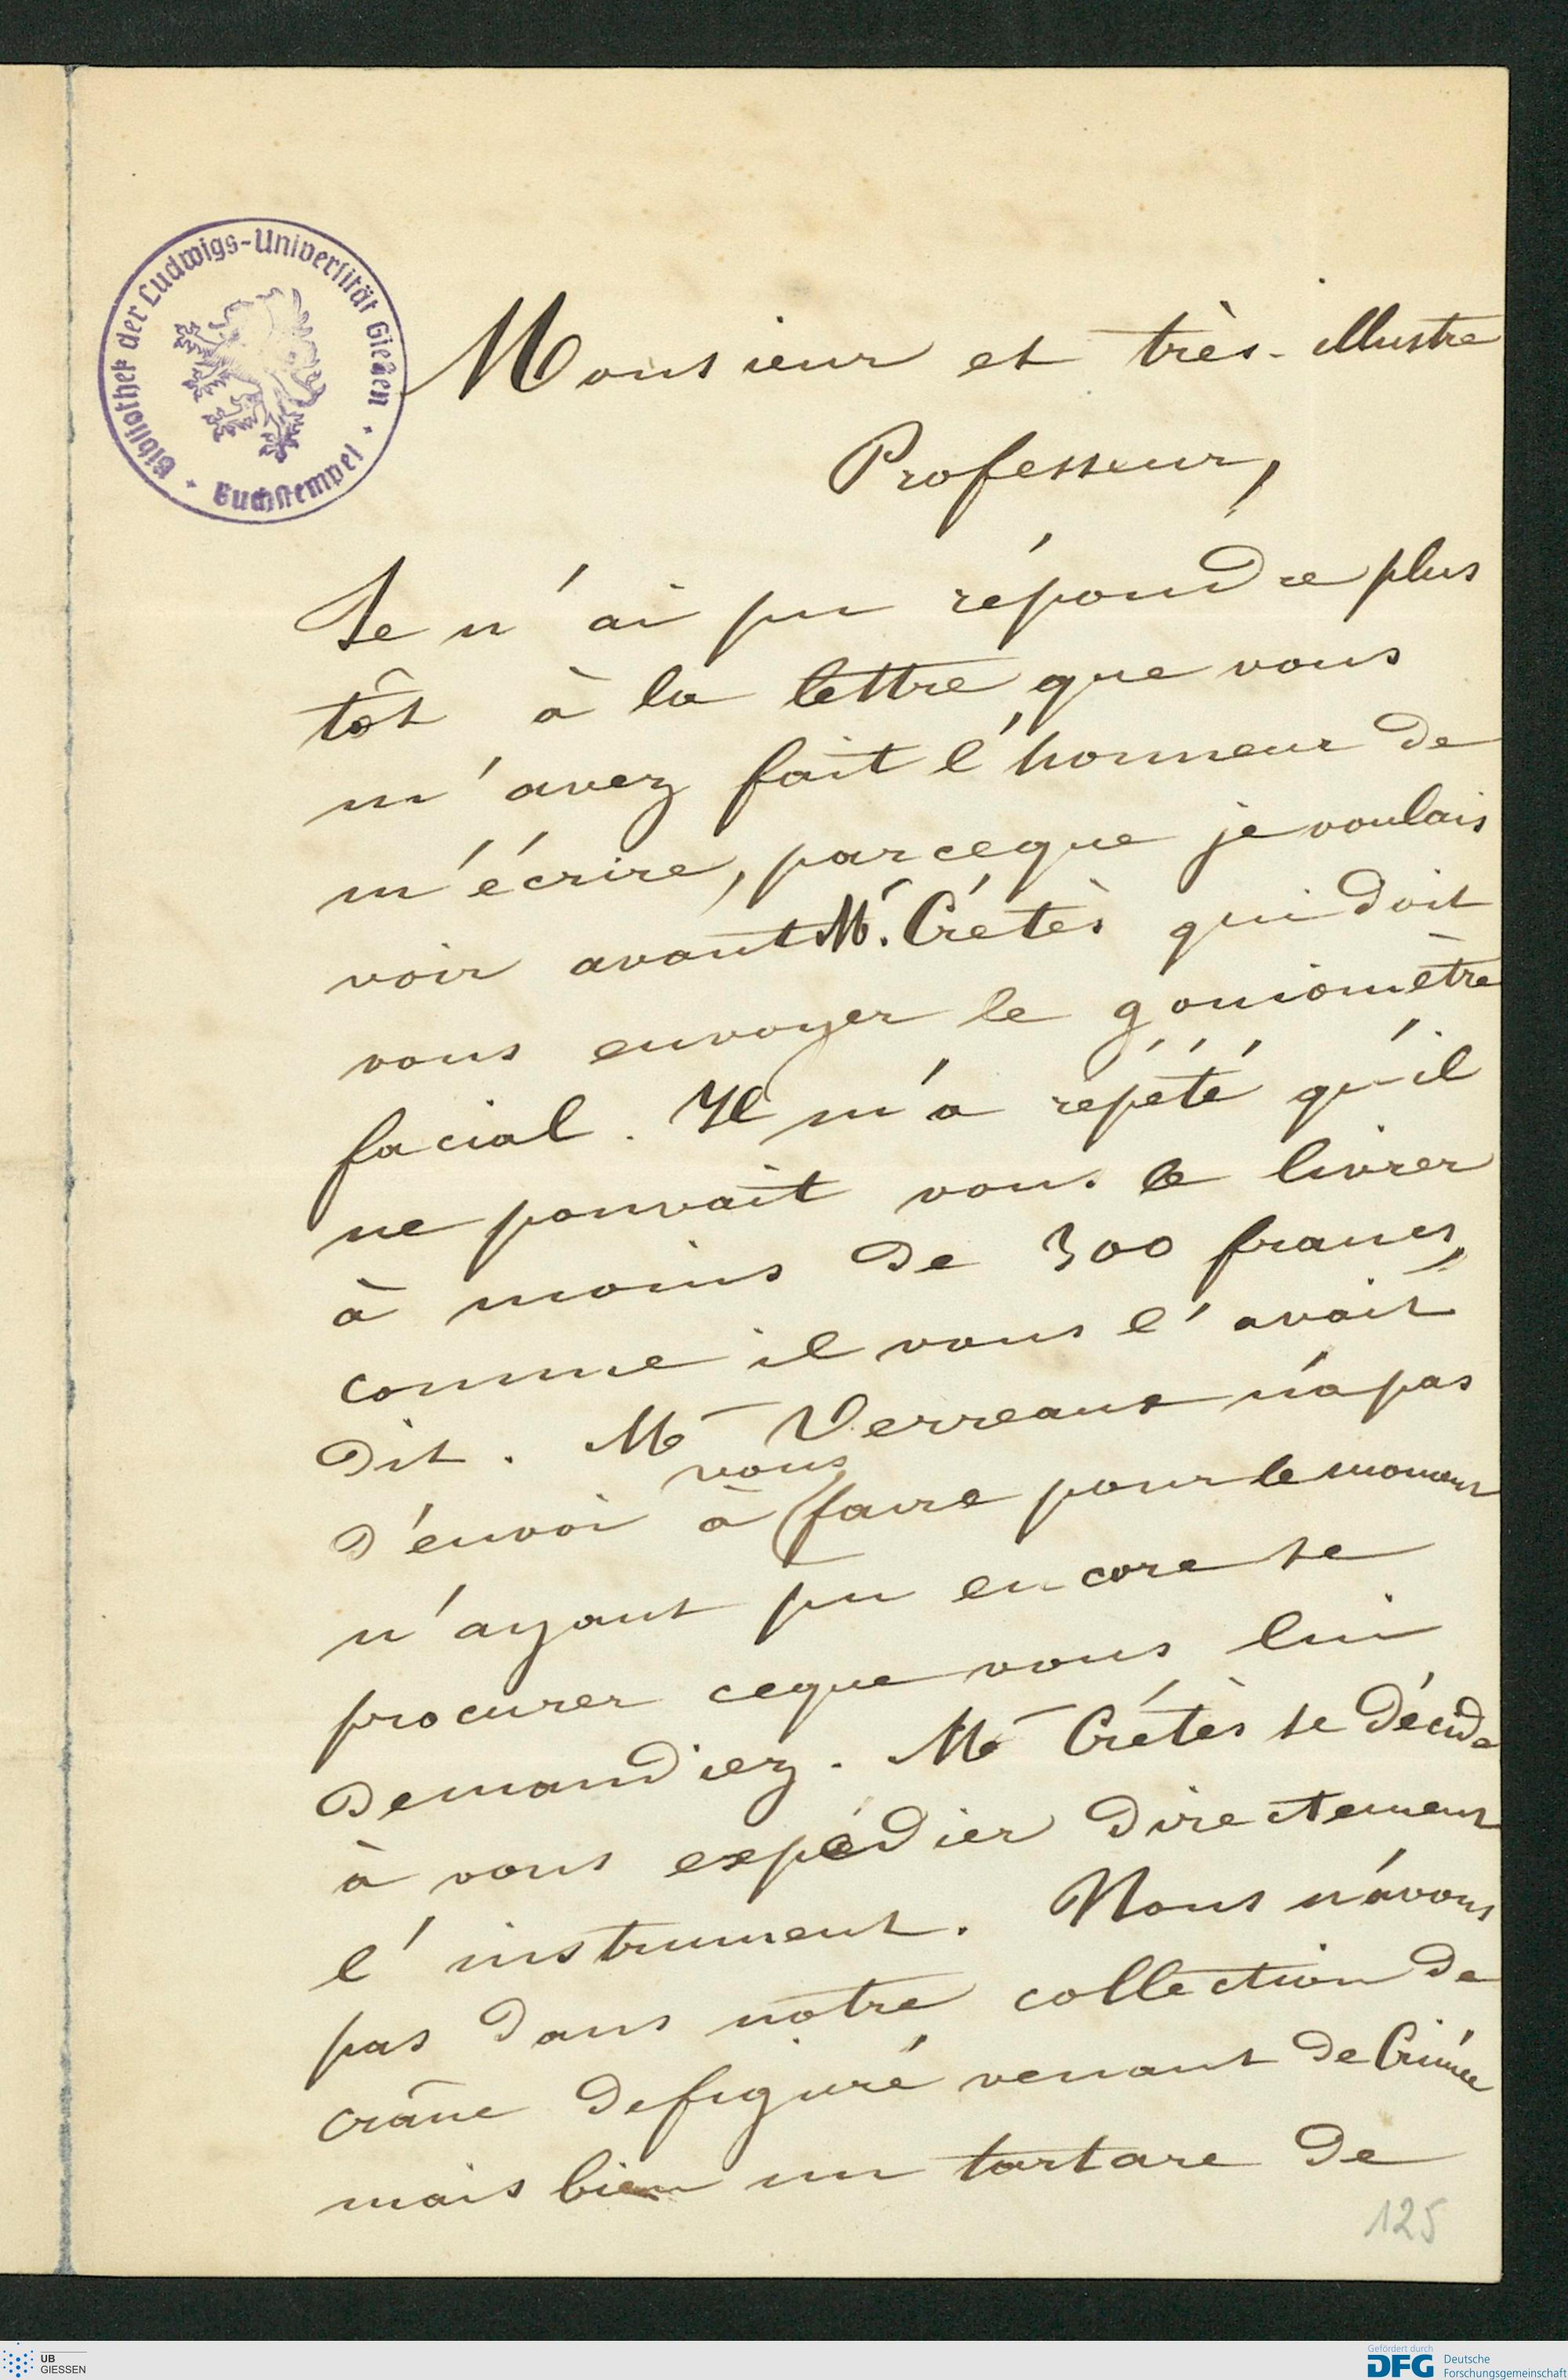 Bibliothek der Ludwigs-Universität Gießen · Buchstempel ·
Monsieur et très-illustre
Professeur,
Je n'ai pu répondre plus
tôt à la lettre que vous
m'avez fait l'honneur de
m'écrire, parceque je voulais
voir avant Mr. Crétès qui doit
vous envoyer le goniomètre
facial. Il m'a répété qu'il
ne pouvait vous le livrer
à moins de 300 francs,
comme il vous l'avait
dit. Mr Verreaux n'a pas
vous
d'envoi à faire pour le moment
n'ayant pu encore se
procurer ceque vous lui
demandiez. Mr Crétès se décide
à vous expédier directement
l'instrument. Nous n'avons
pas dans notre collection de
crâne defiguré venant de Crimée
mais bien un tartare de
125
UB
GIESSEN
Gefördert durch
DFG Deutsche
Forschungsgemeinschaft